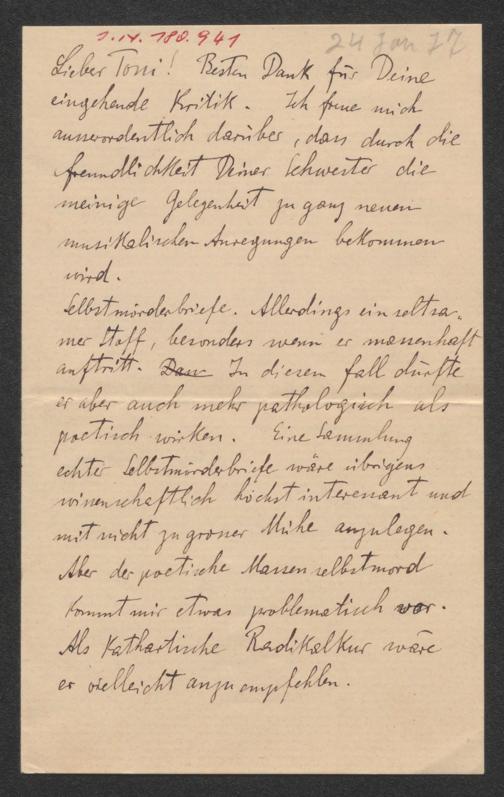 J.N. 180.941
24 Jan 17
Lieber Toni! Besten Dank für Deine
eingehende Kritik. Ich freue mich
ausserordentlich darüber, dass durch die
Freundlichkeit Deiner Schwester die
meinige Gelegenheit zu ganz neuen
musikalischen Anregungen bekommen
wird.
Selbstmörderbriefe. Allerdings ein seltsa-
mer Stoff, besonders wenn er massenhaft
auftritt. In diesem Fall dürfte
er aber auch mehr pathologisch als
poetisch wirken. Eine Sammlung
echter Selbstmörderbriefe wäre übrigens
wissenschaftlich höchst interessant und
mit nicht zu grosser Mühe anzulegen.
Aber der poetische Massenselbstmord
kommt mir etwas problematisch vor.
Als kathartische Radikalkur wäre
er vielleicht anzuempfehlen.